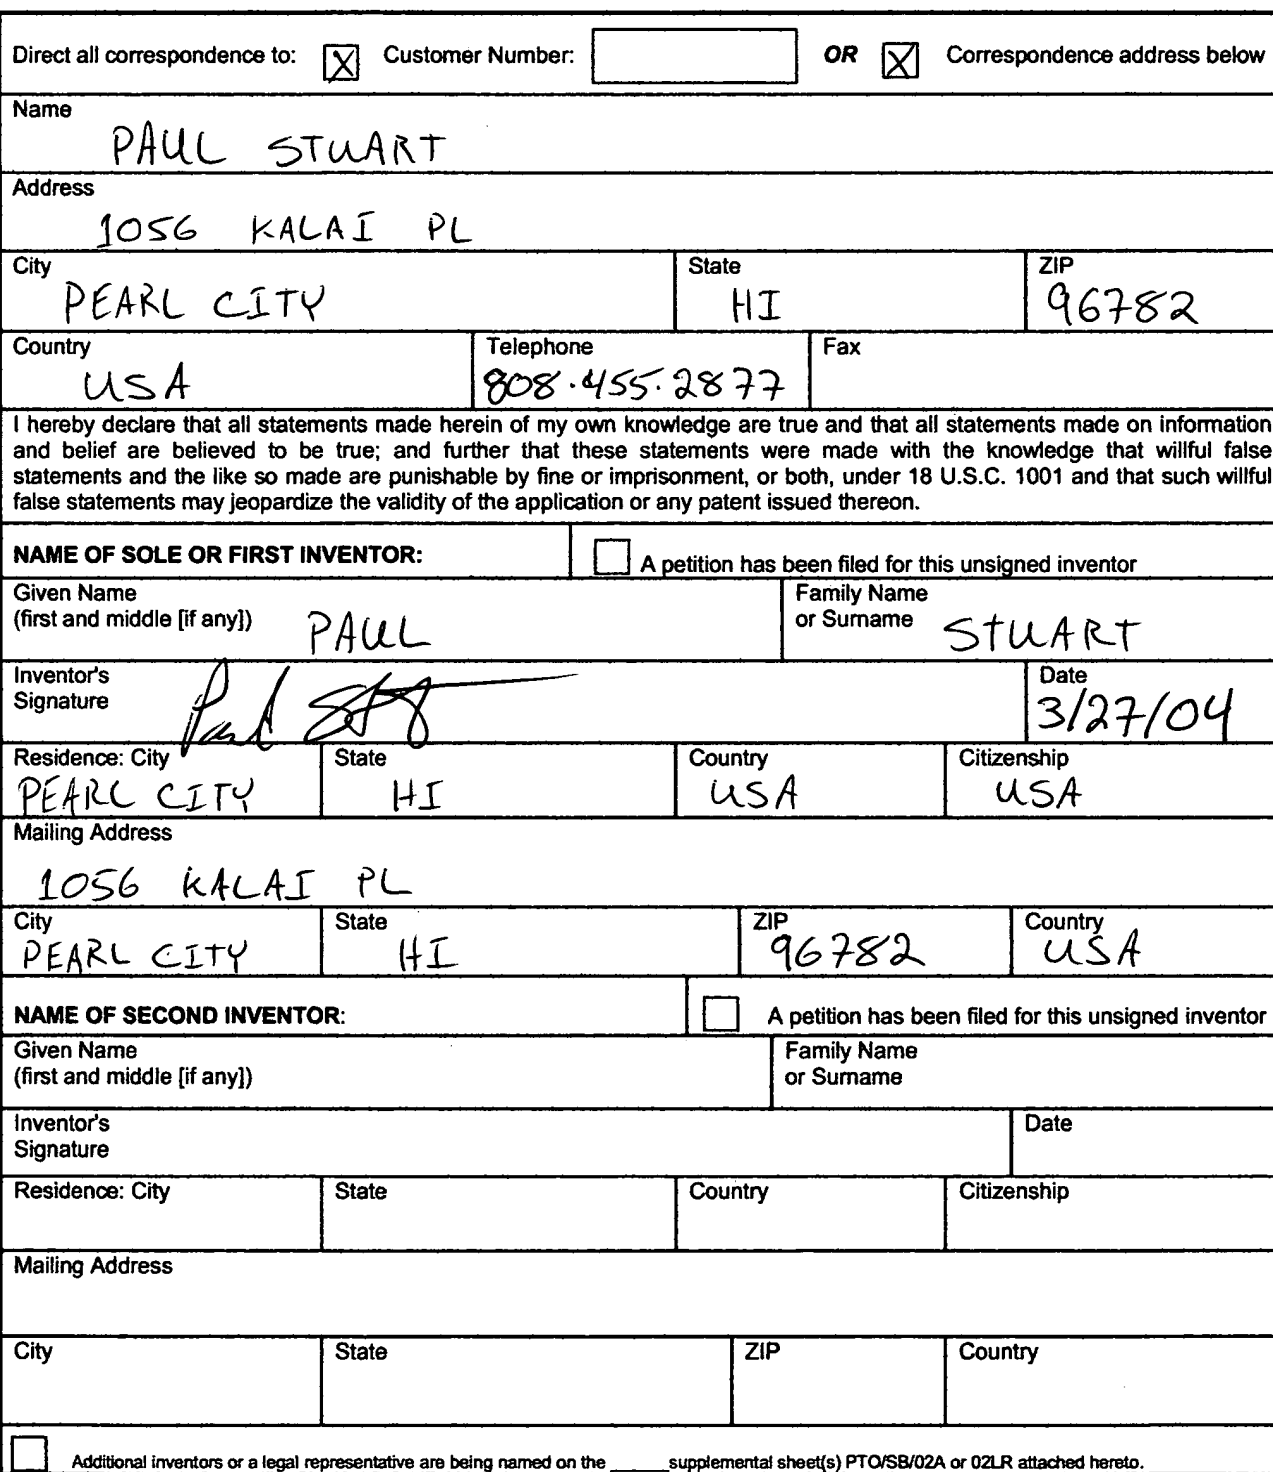 Direct all correspondence to: [X] Customer Number: OR [X] Correspondence address below
Name
PAUL STUART
Address
1056 KALAI PL
City State ZIP
PEARL CITY HI 96782
Country Telephone Fax
USA 808.455.2877
I hereby declare that all statements made herein of my own knowledge are true and that all statements made on information
and belief are believed to be true; and further that these statements were made with the knowledge that willful false
statements and the like so made are punishable by fine or imprisonment, or both, under 18 U.S.C. 1001 and that such willful
false statements may jeopardize the validity of the application or any patent issued thereon.
NAME OF SOLE OR FIRST INVENTOR: A petition has been filed for this unsigned inventor
Given Name Family Name
(first and middle [if any]) PAUL or Surname STUART
Inventor's Date
Signature Paul St 3/27/04
Residence: City State Country Citizenship
PEARL CITY HI USA USA
Mailing Address
1056 KALAI PL
City State ZIP Country
PEARL CITY HI 96782 USA
NAME OF SECOND INVENTOR: A petition has been filed for this unsigned inventor
Given Name Family Name
(first and middle [if any]) or Surname
Inventor's Date
Signature
Residence: City State Country Citizenship
Mailing Address
City State ZIP Country
Additional inventors or a legal representative are being named on the _____ supplemental sheet(s) PTO/SB/02A or 02LR attached hereto.